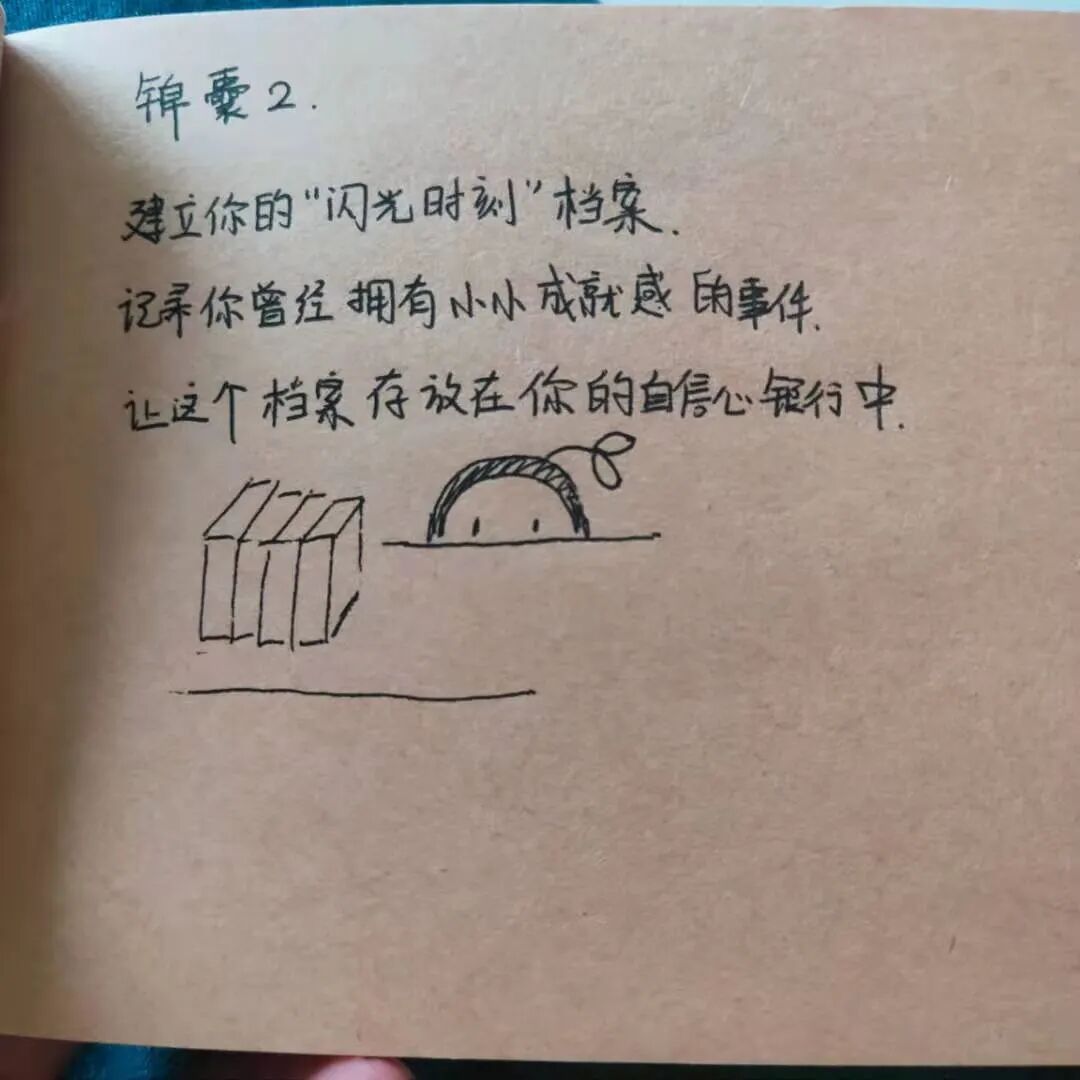 锦囊2.
建立你的“闪光时刻”档案.
记录你曾经拥有小小成就感的事件.
让这个档案存放在你的自信心银行中.